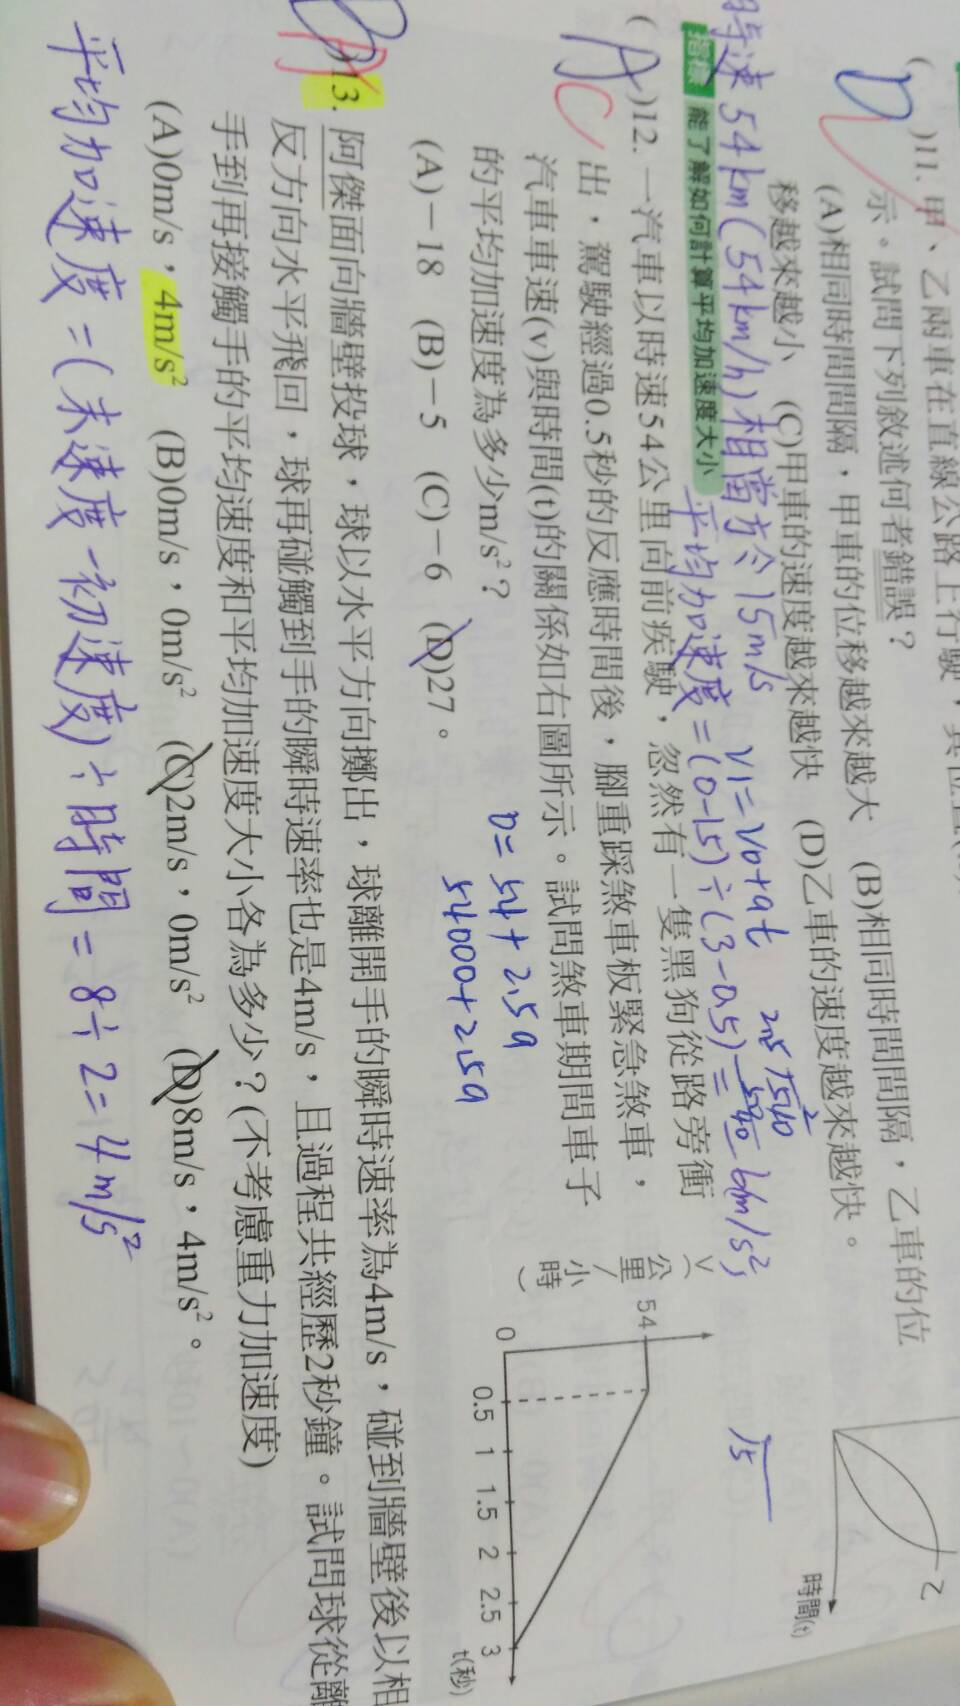 ( )11. 甲、乙兩車在直線公路上行駛,其位置
D
示。試問下列敘述何者錯誤?
(A)相同時間間隔,甲車的位移越來越大 (B)相同時間間隔,乙車的位
移越來越小 (C)甲車的速度越來越快 (D)乙車的速度越來越快。
乙
時間(t)
時速54km(54km/h)相當於15m/s
V1=V0+at
指標 能了解如何計算平均加速度大小
平均加速度=(0-15)÷(3-0.5)=
6m/s²
15
( )12. 一汽車以時速54公里向前疾駛,忽然有一隻黑狗從路旁衝
A C
出,駕駛經過0.5秒的反應時間後,腳重踩煞車板緊急煞車,
汽車車速(v)與時間(t)的關係如右圖所示。試問煞車期間車子
的平均加速度為多少m/s²?
(A)-18 (B)-5 (C)-6 (D)27。
0=54+2.5a
54000+2.5a
V(公里/小時)
54
0 0.5 1 1.5 2 2.5 3
t(秒)
D A
)13. 阿傑面向牆壁投球,球以水平方向擲出,球離開手的瞬時速率為4m/s,碰到牆壁後以相
反方向水平飛回,球再碰觸到手的瞬時速率也是4m/s,且過程共經歷2秒鐘。試問球從離
手到再接觸手的平均速度和平均加速度大小各為多少?(不考慮重力加速度)
(A)0m/s,4m/s² (B)0m/s,0m/s² (C)2m/s,0m/s² (D)8m/s,4m/s²。
平均加速度=(末速度-初速度)÷時間=8÷2=4m/s²